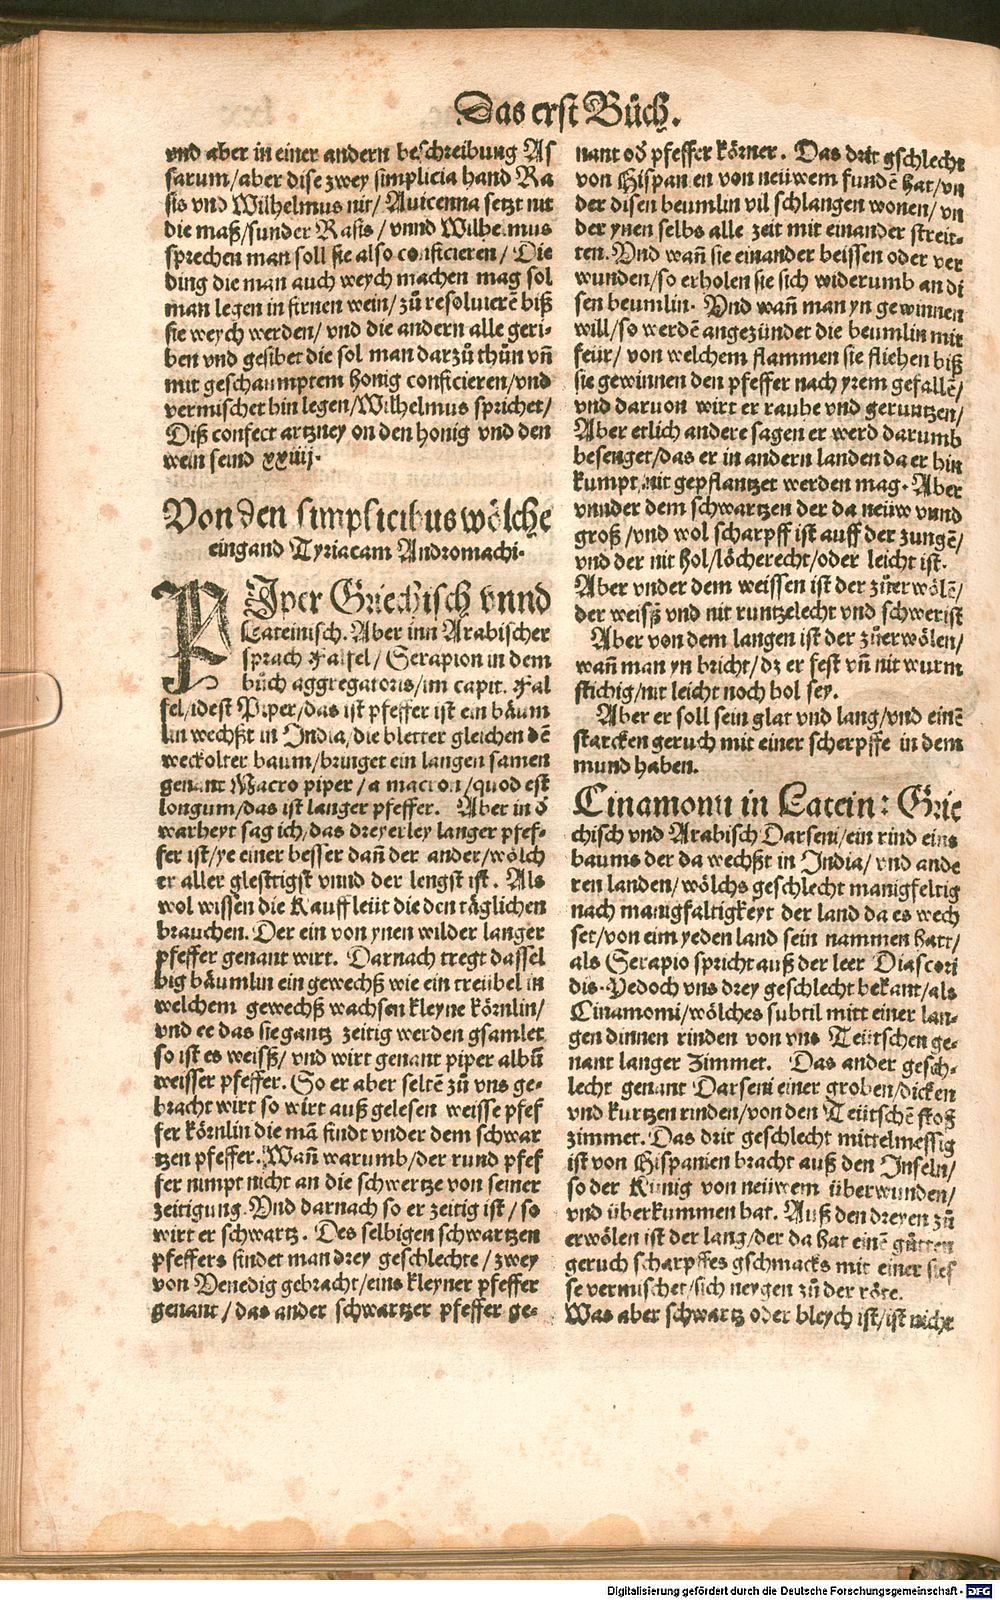 Das erst Bůch.
vnd aber in einer andern beschreibung As
sarum/aber dise zwey simplicia hand Ra
sis vnd Wilhelmus nit/ Auicenna setzt nit
die maß/sunder Rasis/ vnnd Wilhelmus
sprechen man soll sie also conficieren/ Die
ding die man auch weych machen mag sol
man legen in firnen wein/ zů resoluierẽ biß
sie weych werden/ vnd die andern alle geri-
ben vnd gesibet die sol man darzů thůn vñ
mit geschaumptem honig conficieren/vnd
vermischet hin legen/Wilhelmus sprichet/
Diß confect artzney on den honig vnd den
wein seind xxiiij.
Von den simplicibus wölche
eingand Tyriacam Andromachi.
PIper Griechisch vnnd
Lateinisch. Aber inn Arabischer
sprach Falfel/ Serapion in dem
bůch aggregatoris/im capit. Fal
fel/idest Piper/das ist pfeffer ist ein bäum
lin wechßt in India/die bletter gleichen dẽ
weckolter baum/bringet ein langen samen
genant Macro piper/a macron/quod est
longum/das ist langer pfeffer. Aber in d
warheyt sag ich/das dreyerley langer pfef-
fer ist/ye einer besser dañ der ander/wölch
er aller glesttigst vnnd der lengst ist. Als
wol wissen die Kauffleüt die den täglichen
brauchen. Der ein von ynen wilder langer
pfeffer genant wirt. Darnach tregt dassel
big bäumlin ein gewechß wie ein treübel in
welchem gewechß wachsen kleyne körnlin/
vnd ee das sie gantz zeitig werden gsamlet
so ist es weisß/ vnd wirt genant piper albũ
weisser pfeffer. So er aber seltẽ zů vns ge-
bracht wirt so wirt auß gelesen weisse pfef
fer körnlin die mã findt vnder dem schwar
tzen pfeffer. Wañ warumb/der rund pfef
fer nimpt nicht an die schwertze von seiner
zeitigung. Vnd darnach so er zeitig ist/ so
wirt er schwartz. Des selbigen schwartzen
pfeffers findet man drey geschlechte/ zwey
von Venedig gebracht/eins kleyner pfeffer
genant/ das ander schwartzer pfeffer ge-
nant od pfeffer körner. Das drit gschlecht
von Hispanien von neüwem fundẽ hat/vñ
der disen beumlin vil schlangen wonen/ vñ
der ynen selbs alle zeit mit einander streit-
ten. Vnd wañ sie einander beissen oder ver
wunden/so erholen sie sich widerumb an di
sen beumlin. Vnd wañ man yn gewinnen
will/so werdẽ angezündet die beumlin mit
feür/ von welchem flammen sie fliehen biß
sie gewinnen den pfeffer nach yrem gefallẽ/
vnd daruon wirt er rauhe vnd geruntzen/
Aber etlich andere sagen er werd darumb
besenget/das er in andern landen da er hin
kumpt nit gepflantzet werden mag. Aber
vnnder dem schwartzen der da neüw vnnd
groß/vnd wol scharpff ist auff der zungẽ/
vnd der nit hol/löcherecht/oder leicht ist.
Aber vnder dem weissen ist der zů erwölẽ/
der weisß vnd nit runtzelecht vnd schwer ist
Aber von dem langen ist der zů erwölen/
wañ man yn bricht/dz er fest vñ nit wurm
stichig/nit leicht noch hol sey.
Aber er soll sein glat vnd lang/vnd einẽ
starcken geruch mit einer scherpffe in dem
mund haben.
Cinamomi in Latein: Grie
chisch vnd Arabisch Darseni/ein rind eins
baums der da wechßt in India/ vnd ande
ren landen/wölchs geschlecht manigfeltig
nach manigfaltigkeyt der land da es wech
set/von eim yeden land sein nammen hatt/
als Serapio spricht auß der leer Diascori
dis. Yedoch vns drey geschlecht bekant/als
Cinamomi/wölches subtil mitt einer lan-
gen dinnen rinden von vns Teütschen ge-
nant langer Zimmet. Das ander gesch-
lecht genant Darseni einer groben/dicken
vnd kurtzen rinden/von den Teütschẽ stoß
zimmet. Das drit geschlecht mittelmessig
ist von Hispanien bracht auß den Inseln/
so der Künig von neüwem überwunden/
vnd überkummen hat. Auß den dreyen zů
erwölen ist der lang/der da hat einẽ gůtten
geruch scharpffes gschmacks mit einer sies
se vermischet/sich neygen zů der röte.
Was aber schwartz oder bleych ist/ist nicht
Digitalisierung gefördert durch die Deutsche Forschungsgemeinschaft - DFG